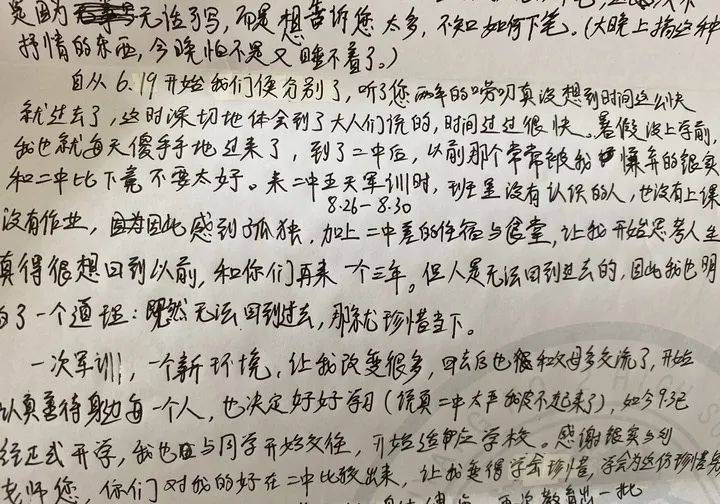 是因为无话了写，而是想告诉您太多，不知如何下笔。（大晚上搞这种
抒情的东西，今晚怕不是又睡不着了。）
自从6.19开始我们便分别了，听了您两年的唠叨真没想到时间这么快
就过去了，这时深切地体会到了大人们说的，时间过过很快。暑假没上学前，
我也就每天傻乎乎地过来了，到了二中后，以前那个常常被我嫌弃的银实
和二中比下竟不要太好。来二中五天军训时，班里没有认识的人，也没有上课
8.26-8.30
没有作业，因此感到孤独，加上二中差的住宿与食堂，让我开始思考人生
真得很想回到以前，和你们再来一个三年。但人是无法回到过去的，因此我也明
了一个道理：既然无法回到过去，那就珍惜当下。
一次军训，一个新环境，让我改变很多，回去后也很和父母多交流了，开始
认真善待身边每一个人，也决定好好学习（说真二中太严我皮不起来了），如今9.3已
经正式开学，我也与同学开始交往，开始适应学校。感谢银实与刘
老师您，你们对我的好在二中比较出来，让我变得学会珍惜，学会为这份珍惜